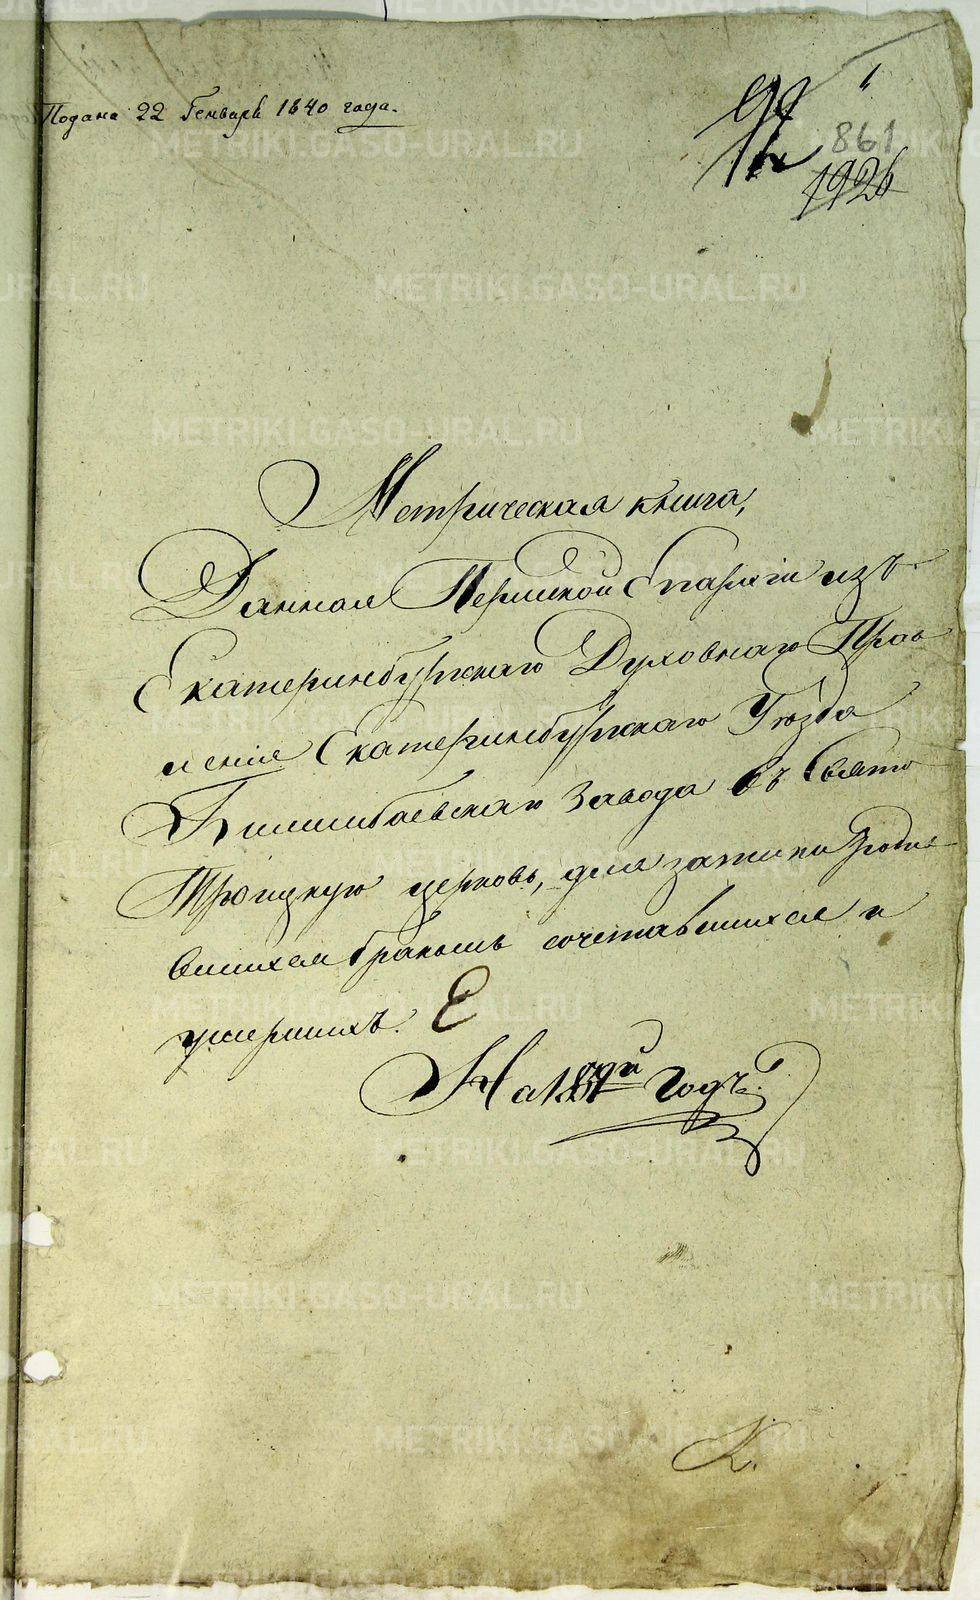 Подана 22 Генваря 1840 года.
861
1926
Метрическая книга,
Данная Пермской Епархіи изъ
Екатеринбургскаго Духовнаго Прав
ленія Екатеринбургскаго Уѣзда
Билимбаевскаго Завода въ Свято
Троицкую церковь, для записки родив
шихся бракомъ сочетавшихся и
умершихъ.
На 18 годъ.
К.
METRIKI.GASO-URAL.RU